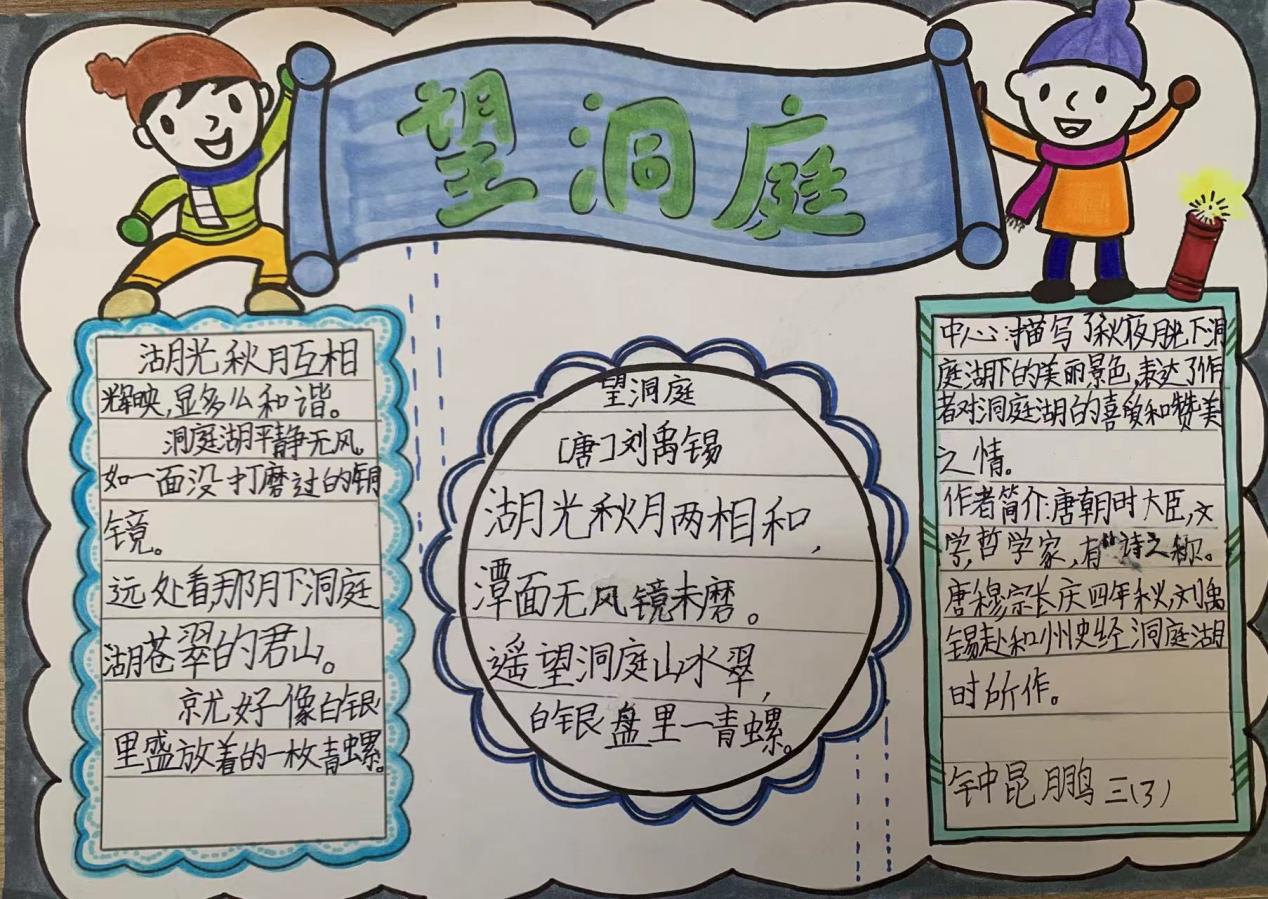 望洞庭
湖月光秋月互相
辉映,显多么和谐。
洞庭湖平静无风。
如一面没打磨过的铜
镜。
远处看,那月下洞庭
湖苍翠的君山。
京尤好像白银
里盛放着的一枚青螺。
望洞庭
[唐]刘禹锡
湖月光秋月两相和,
潭面无风镜未磨。
遥望洞庭山水翠,
白银盘里一青螺。
中心:描写了秋夜月光下洞
庭湖下的美丽景色,表达了作
者对洞庭湖的喜爱和赞美
之情。
作者简介:唐朝时大臣,文
学,哲学家,有“诗之称。
唐穆宗长庆四年秋,刘禹
锡赴和州史经洞庭湖
时所作。
钟昆鹏 三(3)